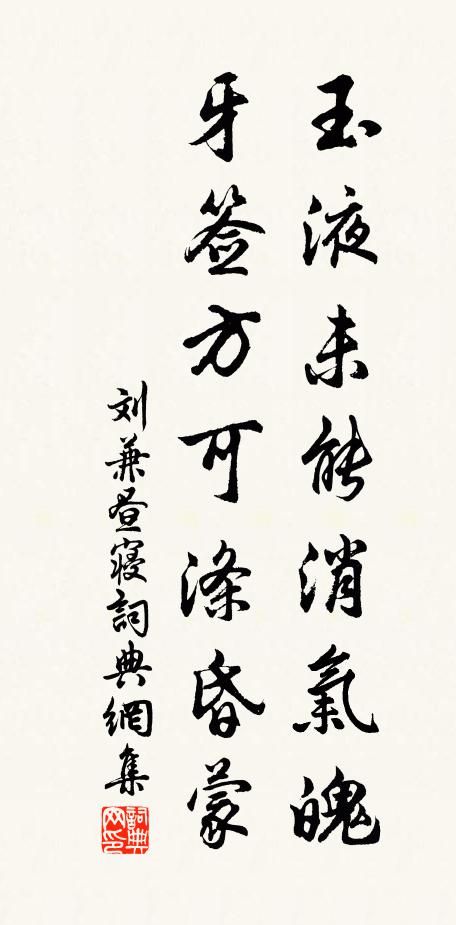 玉液未能消氣魄
牙签方可涤昏蒙
刘兼昼寢詞典網集
詞典网印